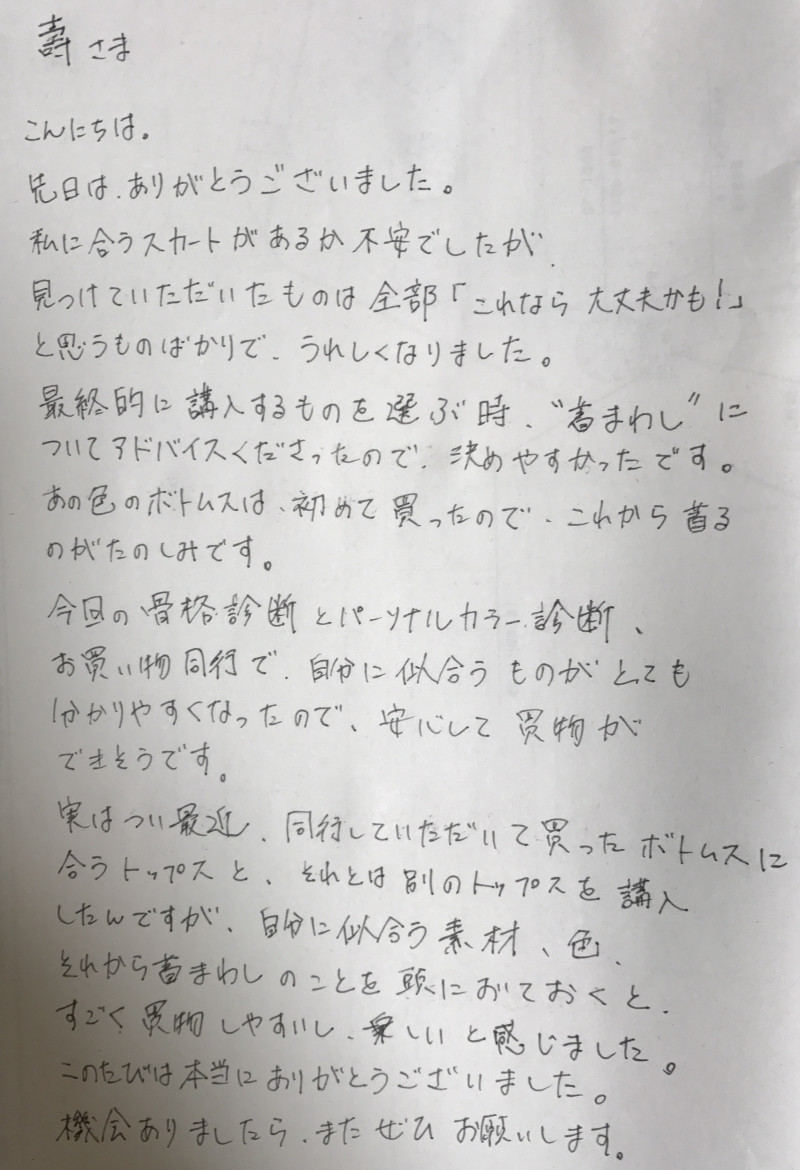 壽さま
こんにちは。
先日は、ありがとうございました。
私に合うスカートがあるか不安でしたが、
見つけていただいたものは全部「これなら大丈夫かも!」
と思うものばかりで、うれしくなりました。
最終的に講入するものを選ぶ時、“着まわし”に
ついてアドバイスくださったので、決めやすかったです。
あの色のボトムスは、初めて買ったので、これから着る
のがたのしみです。
今回の骨格診断とパーソナルカラー診断、
お買い物同行で、自分に似合うものがとても
分かりやすくなったので、安心して買物が
できそうです。
実はつい最近、同行していただいて買ったボトムスに
合うトップスと、それとは別のトップスを講入
したんですが、自分に似合う素材、色、
それから着まわしのことを頭においておくと、
すごく買物しやすいし、楽しいと感じました。
このたびは本当にありがとうございました。
機会ありましたら、またぜひお願いします。